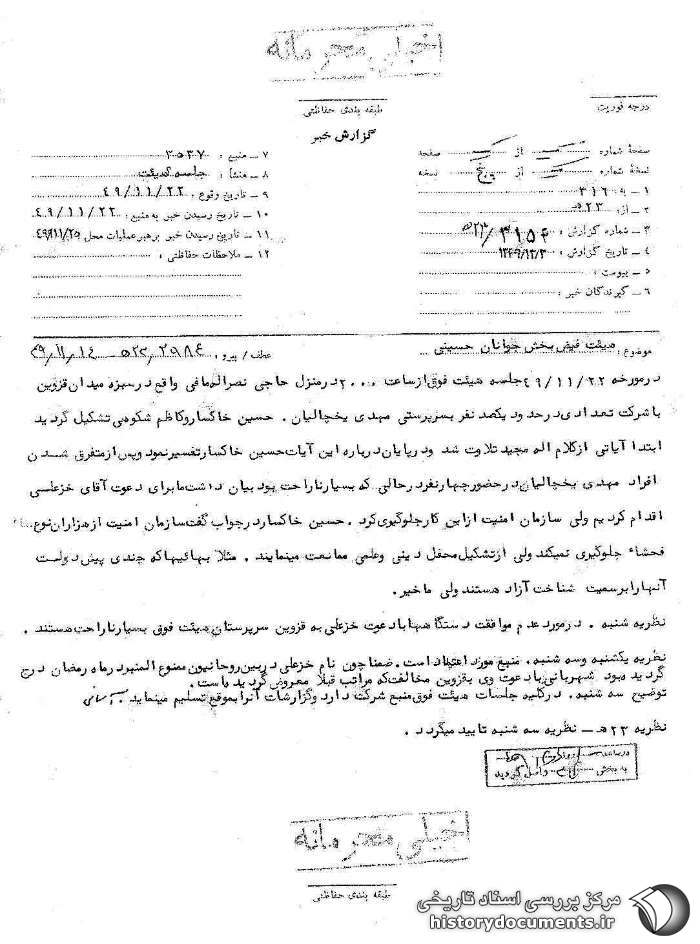 خیلی محرمانه
درجه فوریت
طبقه بندی حفاظتی
گزارش خبر
صفحهٔ شماره یک از یک صفحه
نسخهٔ شماره یک از پنج نسخه
۱ – به ۳۱۶
۲ – از: ۲۳ﻫ
۳ – شماره گزارش: ۲۳ﻫ/۳۱۵۴
۴ – تاریخ گزارش: ۱۳۴۹/۱۲/۳
۵ – پیوست:
۶ – گیرندگان خبر:
۷ – منبع: ۳۵۳۷
۸ – منشأ: جلسه هیئت
۹ – تاریخ وقوع: ۴۹/۱۱/۲۲
۱۰ – تاریخ رسیدن خبر به منبع: ۴۹/۱۱/۲۲
۱۱ – تاریخ رسیدن خبر برهبر عملیات محل ۴۹/۱۱/۲۵
۱۲ – ملاحظات حفاظتی:
موضوع: هیئت فیض بخش جوانان حسینی
عطف / پیرو: ۲۹۸۴/۵۲۲ – ۴۹/۱۱/۱۴
درمورخه ۴۹/۱۱/۲۲ جلسه هیئت فوق ازساعت ۲۰۰۰ درمنزل حاجی نصراله مافی واقع درسبزه میدان قزوین
باشرکت تعدادی درحدود یکصد نفر بسرپرستی مهدی یخچالیان . حسین خاکسار وکاظم شکوهی تشکیل گردید
ابتدا آیاتی ازکلام اله مجید تلاوت شد ودرپایان درباره این آیات حسین خاکسار تفسیر نمود وپس ازمتفرق شدن
افراد مهدی یخچالیان درحضور چهارنفر درحالی که بسیار ناراحت بود بیان داشت ما برای دعوت آقای خزعلی
اقدام کردیم ولی سازمان امنیت ازاین کار جلوگیری کرد . حسین خاکسار درجواب گفت سازمان امنیت از هزاران نوع
فحشاء جلوگیری نمیکند ولی ازتشکیل محفل دینی وعلمی ممانعت مینمایند . مثلا بهائیها که چندی پیش دولت
آنهارا برسمیت شناخت آزاد هستند ولی ما خیر .
نظریه شنبه . درمورد عدم موافقت دستگاهها با دعوت خزعلی به قزوین سرپرستان هیئت فوق بسیار ناراحت هستند .
نظریه یکشنبه وسه شنبه . منبع مورد اعتماد است . ضمنا چون نام خزعلی دربین روحانیون ممنوع المنبر درماه رمضان درج
گردیده بود شهربانی با دعوت وی بقزوین مخالفت که مراتب قبلا معروض گردیده است .
توضیح سه شنبه . درکلیه جلسات هیئت فوق منبع شرکت دارد وگزارشات آنرا بموقع تسلیم مینماید .
نظریه ۲۳ﻫ – نظریه سه شنبه تایید میگردد .
به بخش واصل گردید
خیلی محرمانه
طبقه بندی حفاظتی
مرکز بررسی اسناد تاریخی
historydocuments.ir